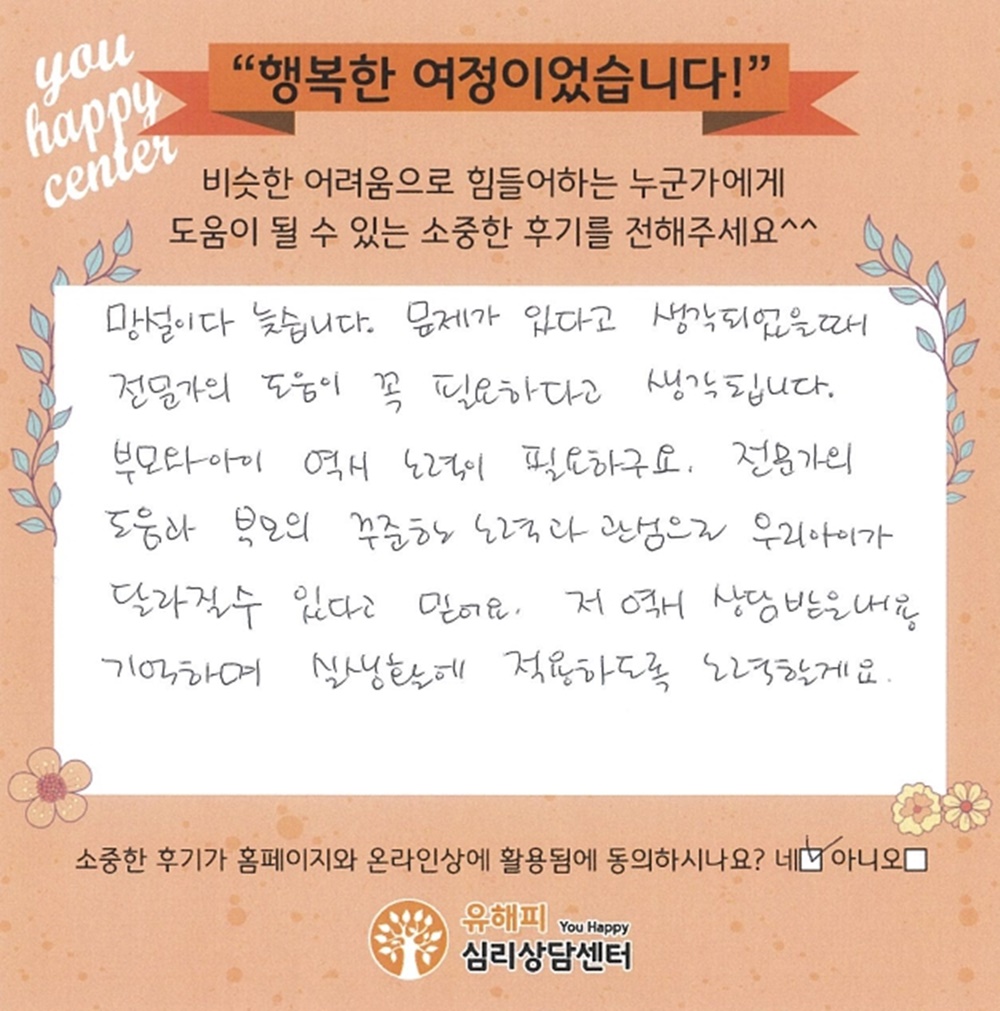 you
happy
center
“행복한 여정이었습니다!”
비슷한 어려움으로 힘들어하는 누군가에게
도움이 될 수 있는 소중한 후기를 전해주세요^^
망설이다 늦습니다. 문제가 있다고 생각되었을때
전문가의 도움이 꼭 필요하다고 생각됩니다.
부모와아이 역시 노력이 필요하구요. 전문가의
도움과 부모의 꾸준한 노력과 관심으로 우리아이가
달라질수 있다고 믿어요. 저 역시 상담받은내용
기억하며 실생활에 적용하도록 노력할게요.
소중한 후기가 홈페이지와 온라인상에 활용됨에 동의하시나요? 네☑ 아니오□
유해피 You Happy
심리상담센터